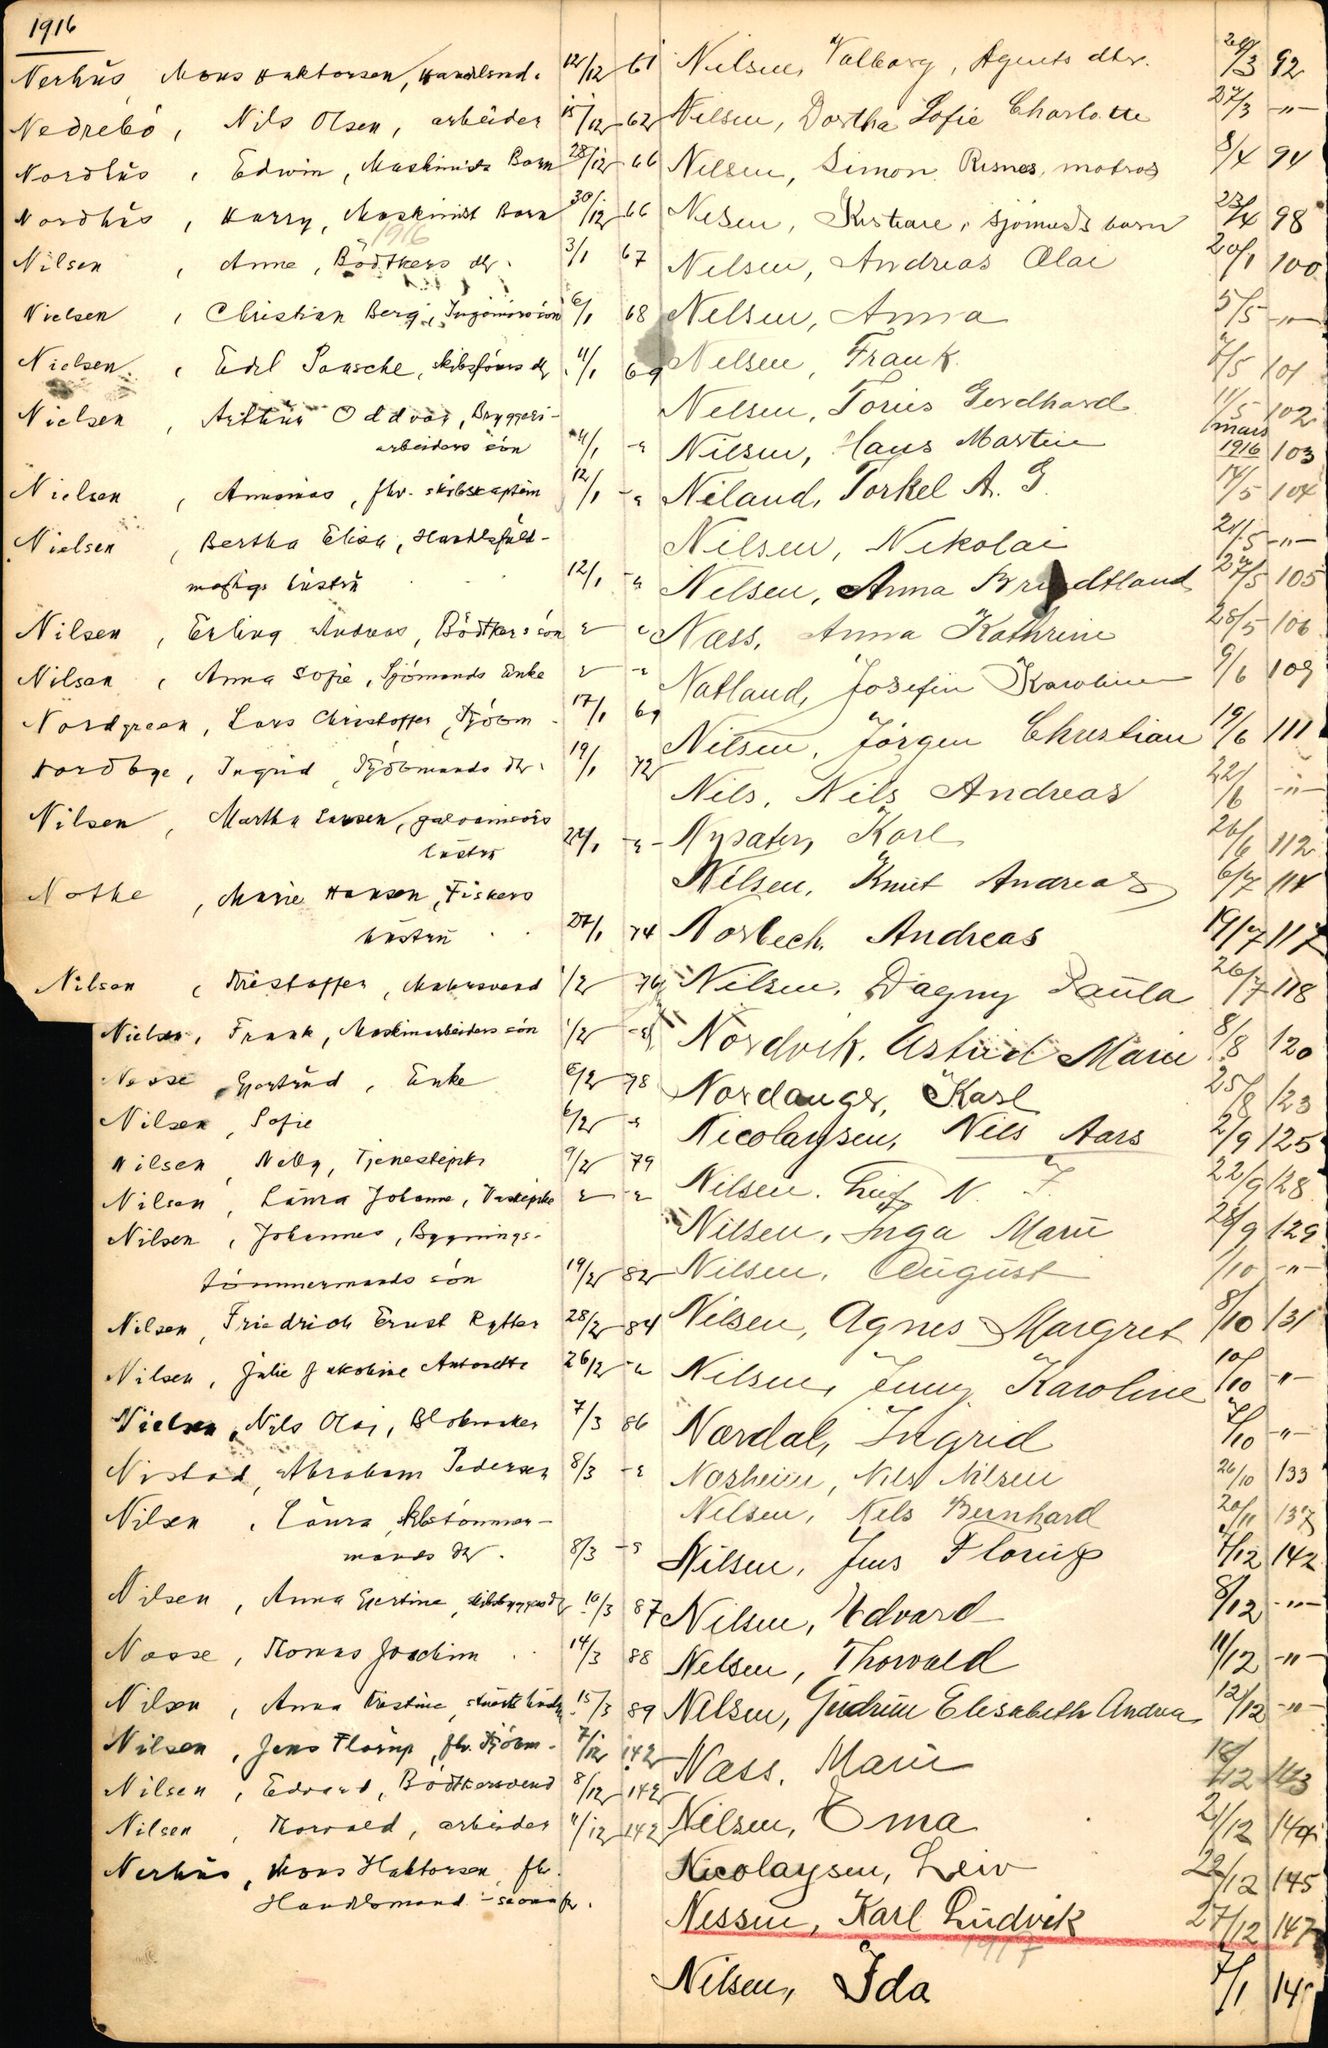 1916
Nerhus, Mons Haktorsen, Handlend. 12/12 61
Nedrebö, Nils Olsen, arbeider 15/12 62
Nordhus, Edwin, Maskinists Barn 28/12 66
Nordhus, Harry, Maskinist Barn 30/12 66
1916
Nilsen, Anne, Bödtkers dtr. 3/1 67
Nielsen, Christian Berg, Ingeniörs sön 6/1 68
Nielsen, Edel Paasche, skibsförers dtr. 11/1 69
Nielsen, Arthur Oddvar, Bryggeri-
arbeiders sön 11/1 -"
Nielsen, Ammonias, fhv. skibskaptein 12/1 -"
Nielsen, Bertha Elisa, Handelsfuld-
mægtigs hustru 12/1 -"
Nilsen, Erling Andreas, Bödtkers sön " "
Nilsen, Anna Sofie, Sjömands Enke " -"
Nordgreen, Lars Christoffer, Kjöbm. 17/1 69
Nordbye, Ingrid, Kjöbmands dtr. 19/1 72
Nilsen, Martha Larsen, galvanisörs
hustru 24/1 -"-
Nothe, Marie Hansen, Fiskers
hustru 27/1 74
Nilsen, Kristoffer, Malersvend 1/2 76
Nielsen, Frank, Maskinarbeiders sön 1/2 -"
Nesse, Gjertrud, Enke 6/2 78
Nilsen, Sofie 6/2 -"
Nilsen, Nelly, Tjenestepike 9/2 79
Nilsen, Laura Johanne, " -"
Nilsen, Johannes, Bygnings-
tömmermands sön 19/2 82
Nilsen, Friedrich Ernst Rytter 28/2 84
Nilsen, Julie Jakobine Antonette 26/2 -"
Nielsen, Nils Olai, Blokmaker 7/3 86
Nistad, Abraham Pedersen 8/3 -"
Nilsen, Laura, skibstömmer-
mands dtr. 8/3 -"
Nilsen, Anna Gjertine, skibsbyggers dtr. 10/3 87
Nesse, Thomas Joachim 14/3 88
Nilsen, Anna Kristine, 15/3 89
Nilsen, Jens Florup, fhv. Kjöbm. 7/12 142
Nilsen, Edvard, Bödtkersvend 8/12 142
Nilsen, Thorvald, arbeider 11/12 142
Nerhus, Mons Haktorsen, fhv.
Handelsmand - se ovenfr.
Nilsen, Valborg, Agents dtr. 24/3 92
Nilsen, Dorthea Sofie Charlotte 27/3 -"-
Nilsen, Simon Risnes, matros 8/4 94
Nilsen, Kristiane, sjömands barn 23/4 98
Nilsen, Andreas Olai 20/1 100
Nilsen, Anna 5/5 -"-
Nilsen, Frank 7/5 101
Nilsen, Torius Gerdhard 11/5 102
Nilsen, Hans Martin mars 1916 103
Neland, Torkel A. G. 14/5 104
Nilsen, Nikolai 21/5 -"-
Nilsen, Anna Breidtland 27/5 105
Næss, Anna Kathrine 28/5 106
Natland, Josefin Karoline 9/6 109
Nilsen, Jörgen Christian 19/6 111
Nils, Nils Andreas 22/6 -"-
Nysater, Karl 26/6 112
Nilsen, Knut Andreas 6/7 114
Norbech, Andreas 19/7 117
Nilsen, Dagny Paula 26/7 118
Nordvik, Astrid Marie 8/8 120
Nordanger, Karl 25/8 123
Nicolaysen, Nils Aars 2/9 125
Nilsen, Leif N. F. 22/9 128
Nilsen, Inga Marie 28/9 129
Nilsen, August 1/10 -"-
Nilsen, Agnes Margret 8/10 131
Nilsen, Jenny Karoline 10/10 -"-
Nordal, Ingrid 7/10 -"-
Norheim, Nils Nilsen 26/10 133
Nilsen, Nils Bernhard 20/11 137
Nilsen, Jens Florup 7/12 142
Nilsen, Edvard 8/12 -"-
Nilsen, Thorvald 11/12 -"-
Nilsen, Gudrun Elisabeth Andrea 12/12 -"-
Næss, Marie 18/12 143
Nilsen, Oma 21/12 144
Nicolaysen, Leiv 22/12 145
Nessen, Karl Ludvik 27/12 147
1917
Nilsen, Ida 7/1 14